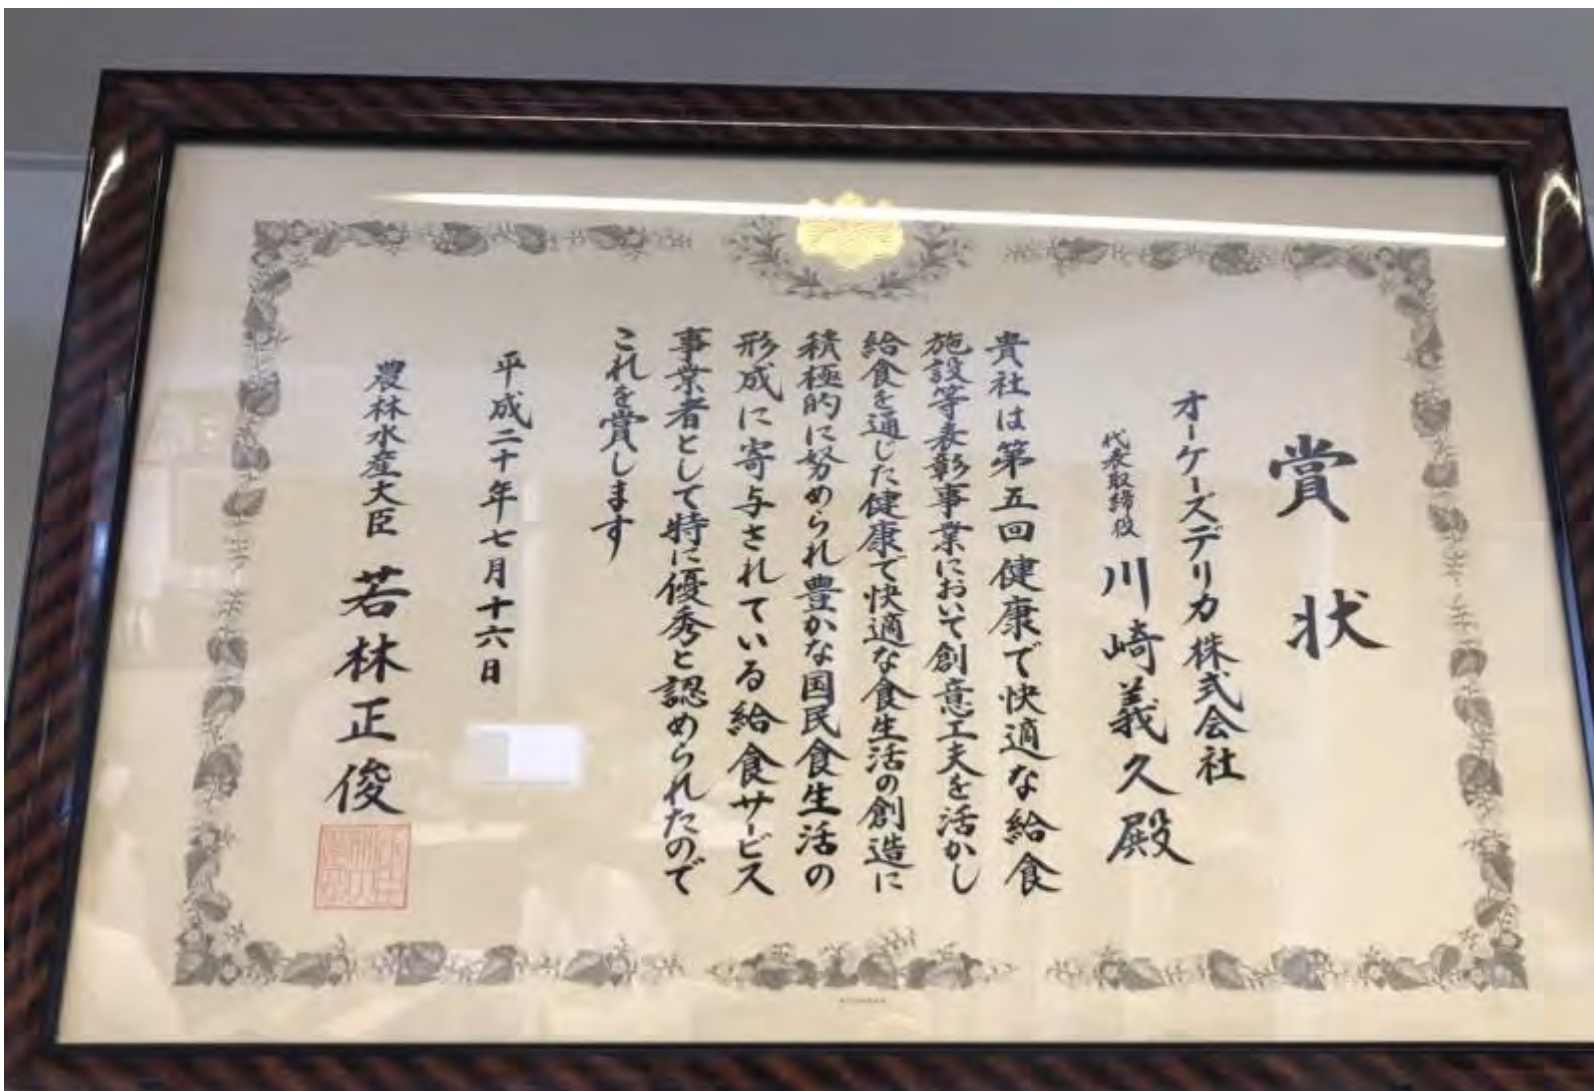 賞状
オーケーズデリカ株式会社
代表取締役 川崎義久殿
貴社は第五回健康で快適な給食
施設等表彰事業において創意工夫を活かし
給食を通した健康で快適な食生活の創造に
積極的に努められ豊かな国民食生活の
形成に寄与されている給食サービス
事業者として特に優秀と認められたので
これを賞します
平成二十年七月十六日
農林水産大臣 若林正俊